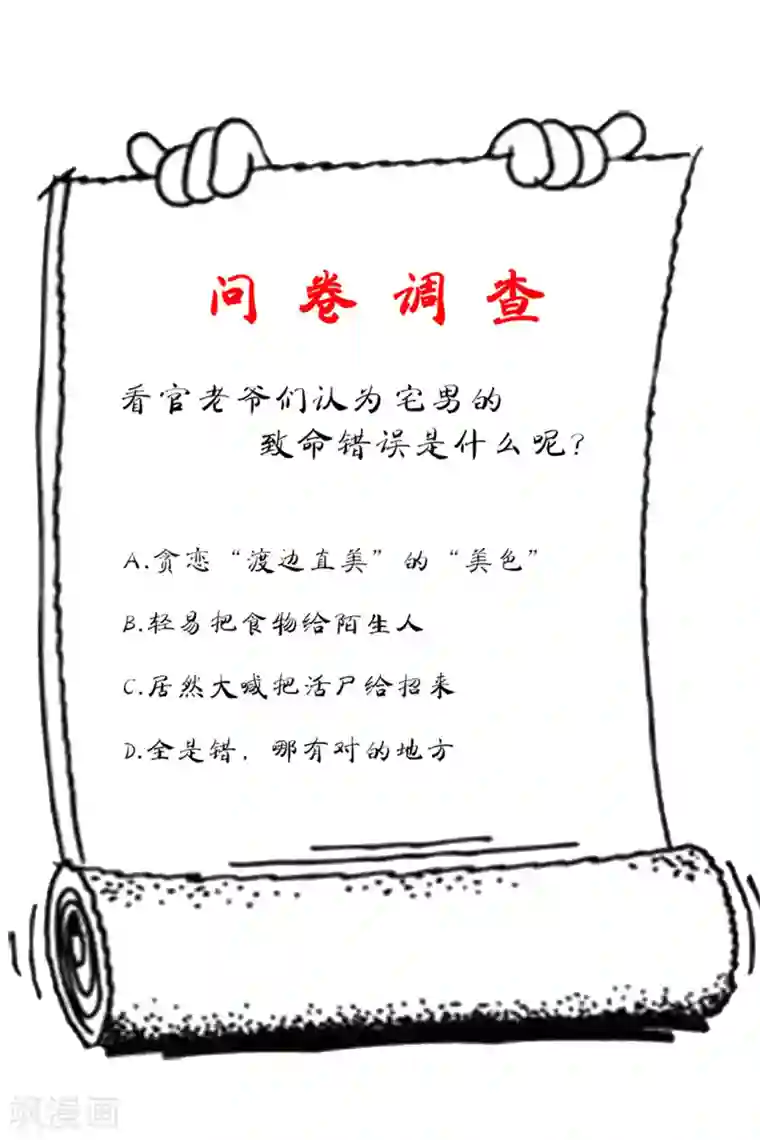 问卷调查
看官老爷们认为宅男的
致命错误是什么呢?
A.贪恋“渡边直美”的“美色”
B.轻易把食物给陌生人
C.居然大喊把活尸给招来
D.全是错，哪有对的地方
飒漫画